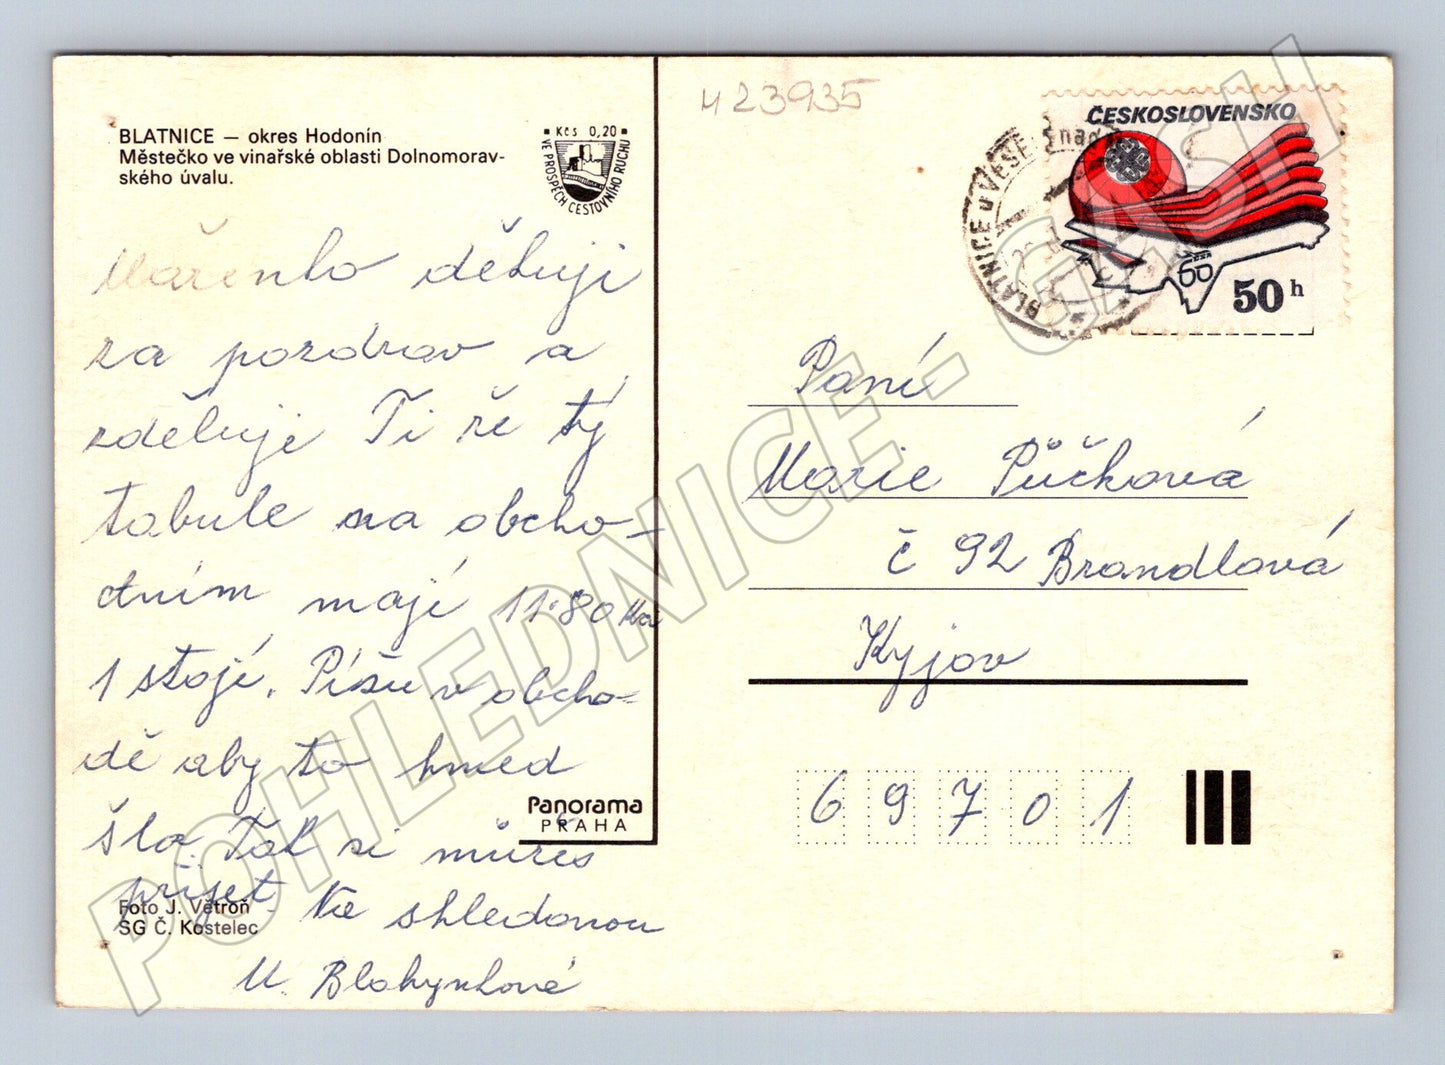 BLATNICE — okres Hodonín
Městečko ve vinařské oblasti Dolnomorav-
ského úvalu.
Kčs 0,20
VE PROSPĚCH CESTOVNÍHO RUCHU
Mařenko děkuji
za pozdrav a
zděluje Ti že tý
tabule na obcho-
dním mají 11·80 Ka
1 stojí. Píšu v obcho-
dě aby to hned
šla. Tak si můžes
přijet. Na shledanou
M. Blahynková
Panorama
PRAHA
Foto J. Větroň
SG Č. Kostelec
423935
ČESKOSLOVENSKO
60
50 h
BLATNICE u VESELÍ nad
Paní
Marie Půčková
č 92 Brandlová
Kyjov
6 9 7 0 1
POHLEDNICE - GASH